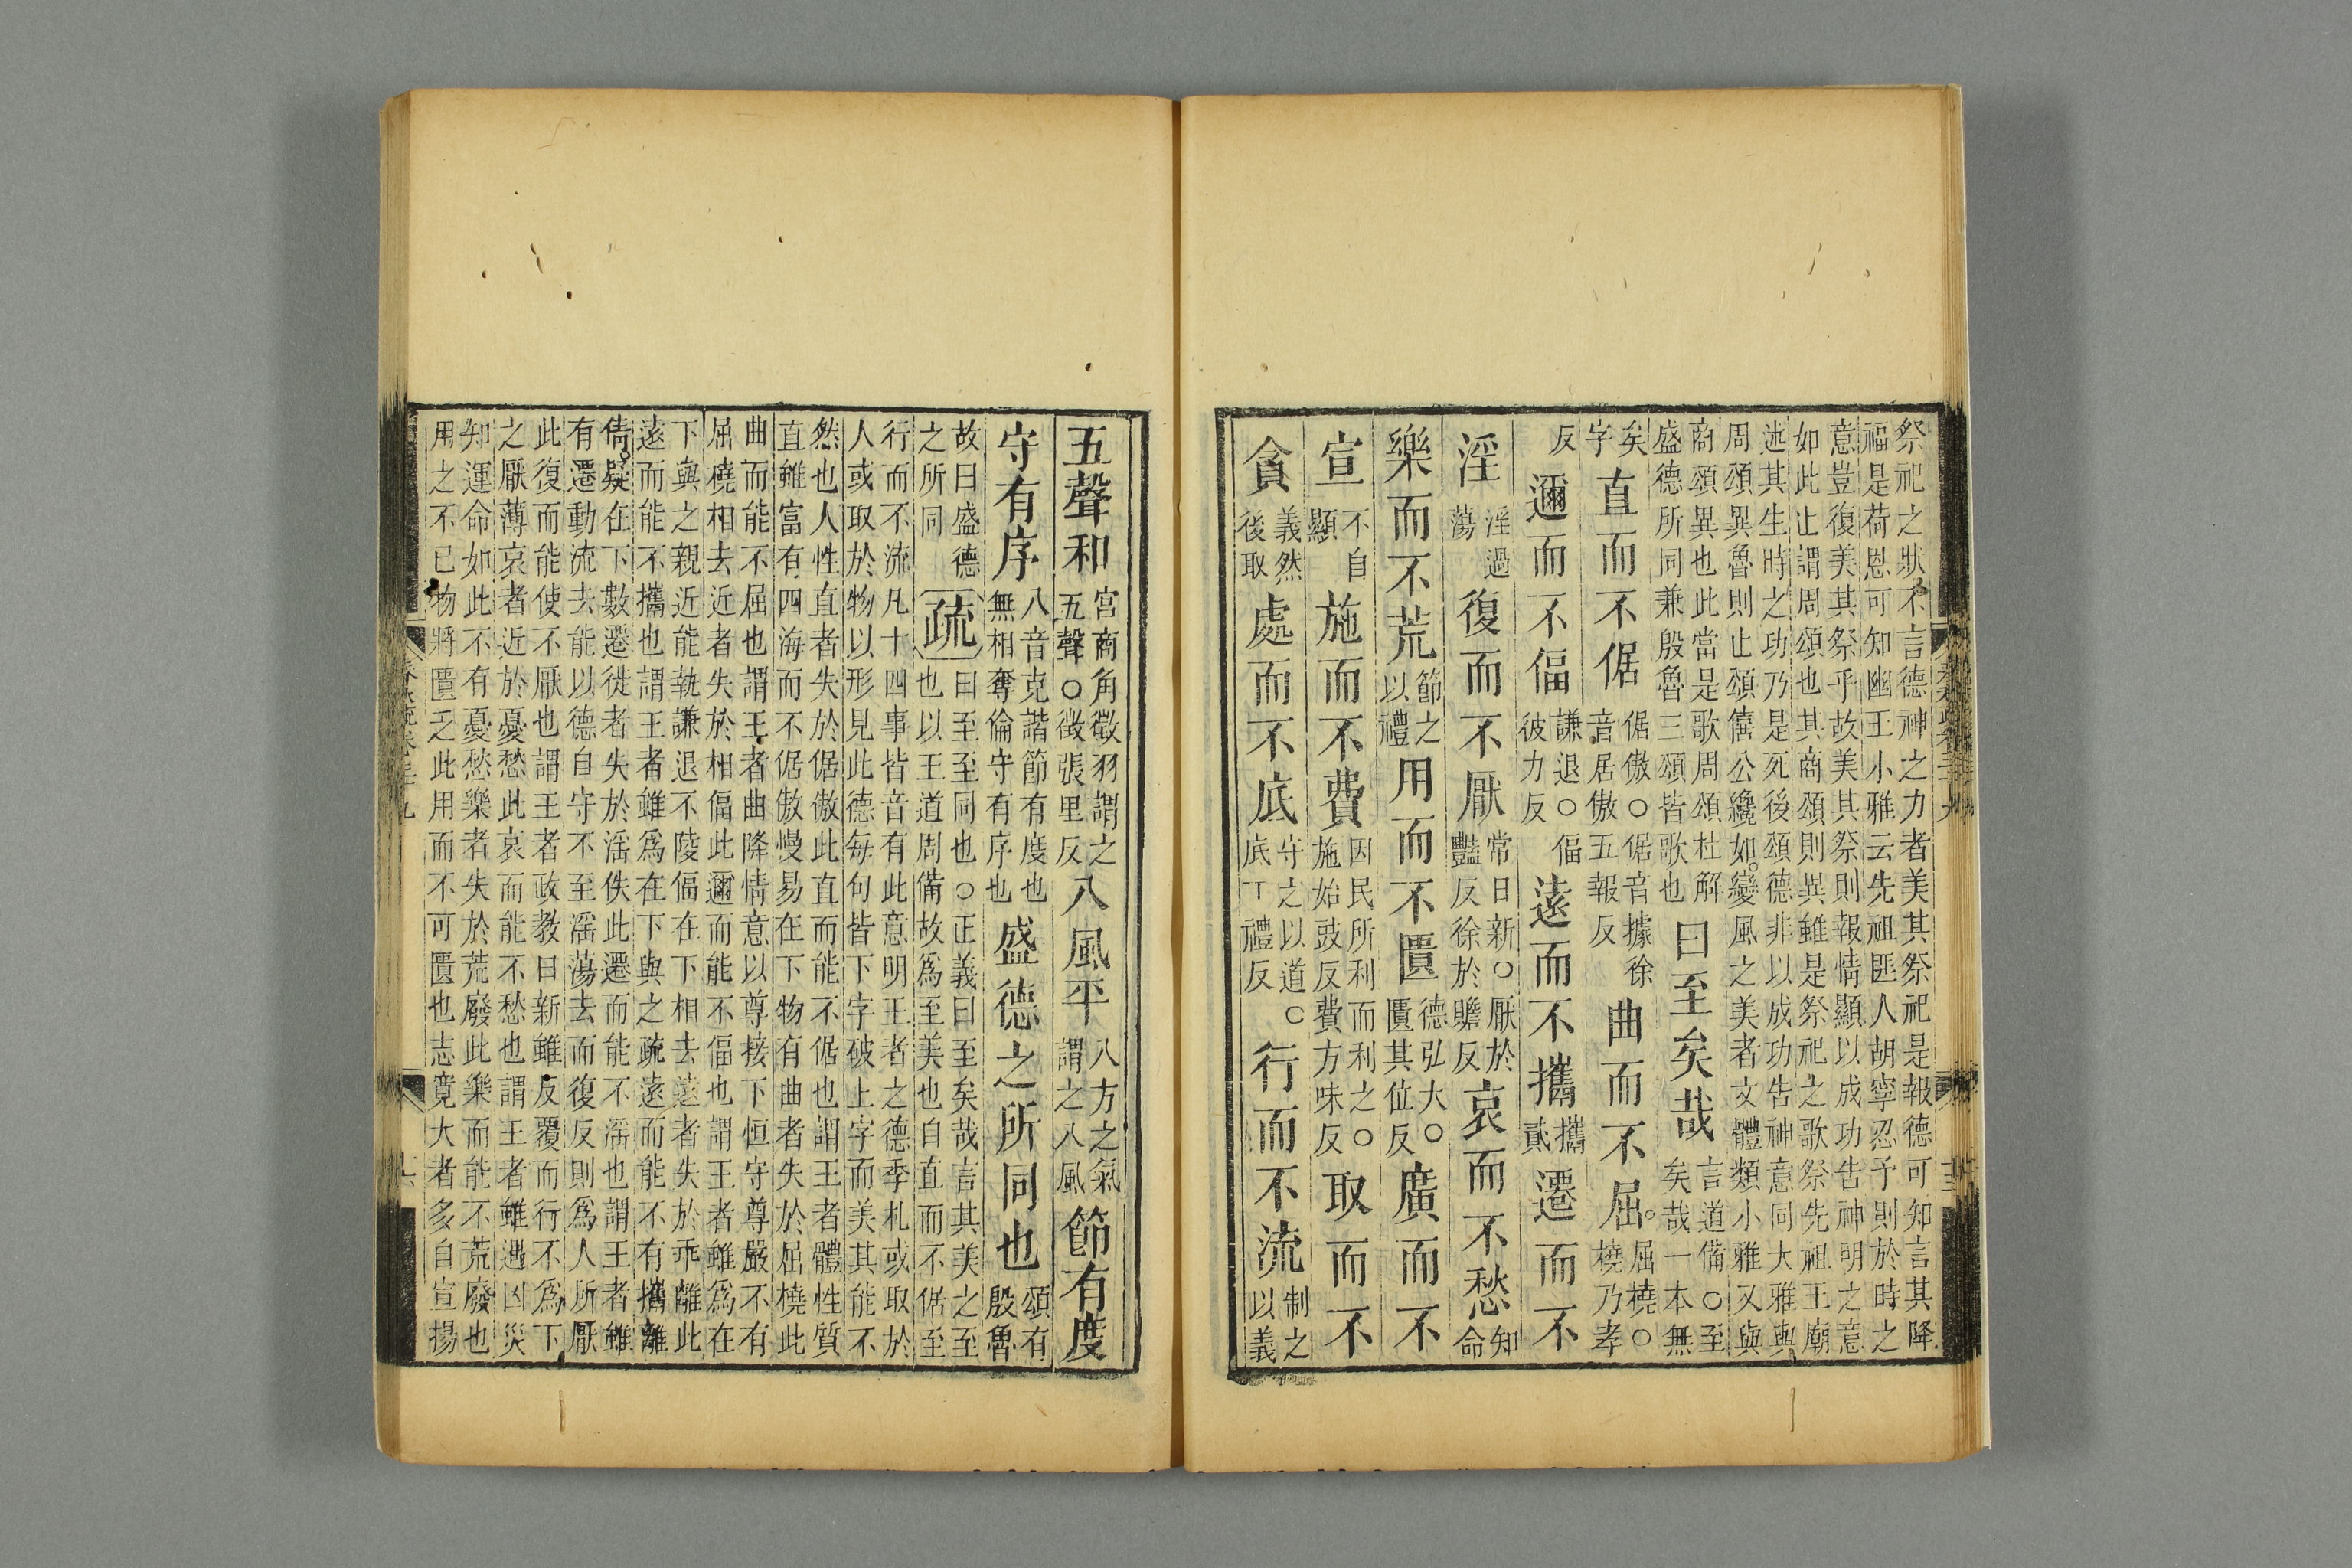 祭祀之狀不言德神之力者美其祭祀是報德可知言其降
福是荷恩可知幽王小雅云先祖匪人胡寧忍予則於時之
意豈復美其祭乎故美其祭則報情顯以成功告神明之意
如此止謂周頌也其商頌則異雖是祭祀之歌祭先祖王廟
述其生時之功乃是死後頌德非以成功告神意同大雅與
周頌異魯則止頌僖公纔如變風之美者文體類小雅又與
商頌異也此當是歌周頌杜解盛德所同兼殷魯三頌皆歌也曰至矣哉言道備○至矣哉一本無
矣字直而不倨倨傲○倨音據徐音居傲五報反曲而不屈屈橈○橈乃孝
反邇而不偪謙退○偪彼力反遠而不攜攜貳遷而不
淫淫過蕩復而不厭常日新○厭於豔反徐於贍反哀而不愁知命
樂而不荒節之以禮用而不匱德弘大○匱其位反廣而不
宣不自顯施而不費因民所利而利之○施始豉反費方味反取而不
貪義然後取處而不底守之以道○底丁禮反行而不流制之以義
五聲和宮商角徵羽謂之五聲○徵張里反八風平八方之氣謂之八風節有度
守有序八音克諧節有度也無相奪倫守有序也盛德之所同也頌有殷魯
故曰盛德之所同疏曰至至同也○正義曰至矣哉言其美之至也以王道周備故爲至美也自直而不倨至
行而不流凡十四事皆音有此意明王者之德季札或取於
人或取於物以形見此德每句皆下字破上字而美其能不
然也人性直者失於倨傲此直而能不倨也謂王者體性質
直雖富有四海而不倨傲慢易在下物有曲者失於屈橈此
曲而能不屈也謂王者曲降情意以尊接下恒守尊嚴不有
屈橈相去近者失於相偪此邇而能不偪也謂王者雖爲在
下與之親近能執謙退不陵偪在下相去遠者失於乖離此
遠而能不攜也謂王者雖爲在下與之疏遠而能不有攜離
倩疑在下數遷徙者失於淫佚此遷而能不淫也謂王者雖
有遷動流去能以德自守不至淫蕩去而復反則爲人所厭
此復而能使不厭也謂王者政教日新雖反覆而行不爲下
之厭薄哀者近於憂愁此哀而能不愁也謂王者雖遇凶災
知運命如此不有憂愁樂者失於荒廢此樂而能不荒廢也
用之不已物將匱乏此用而不可匱也志寛大者多自宣揚